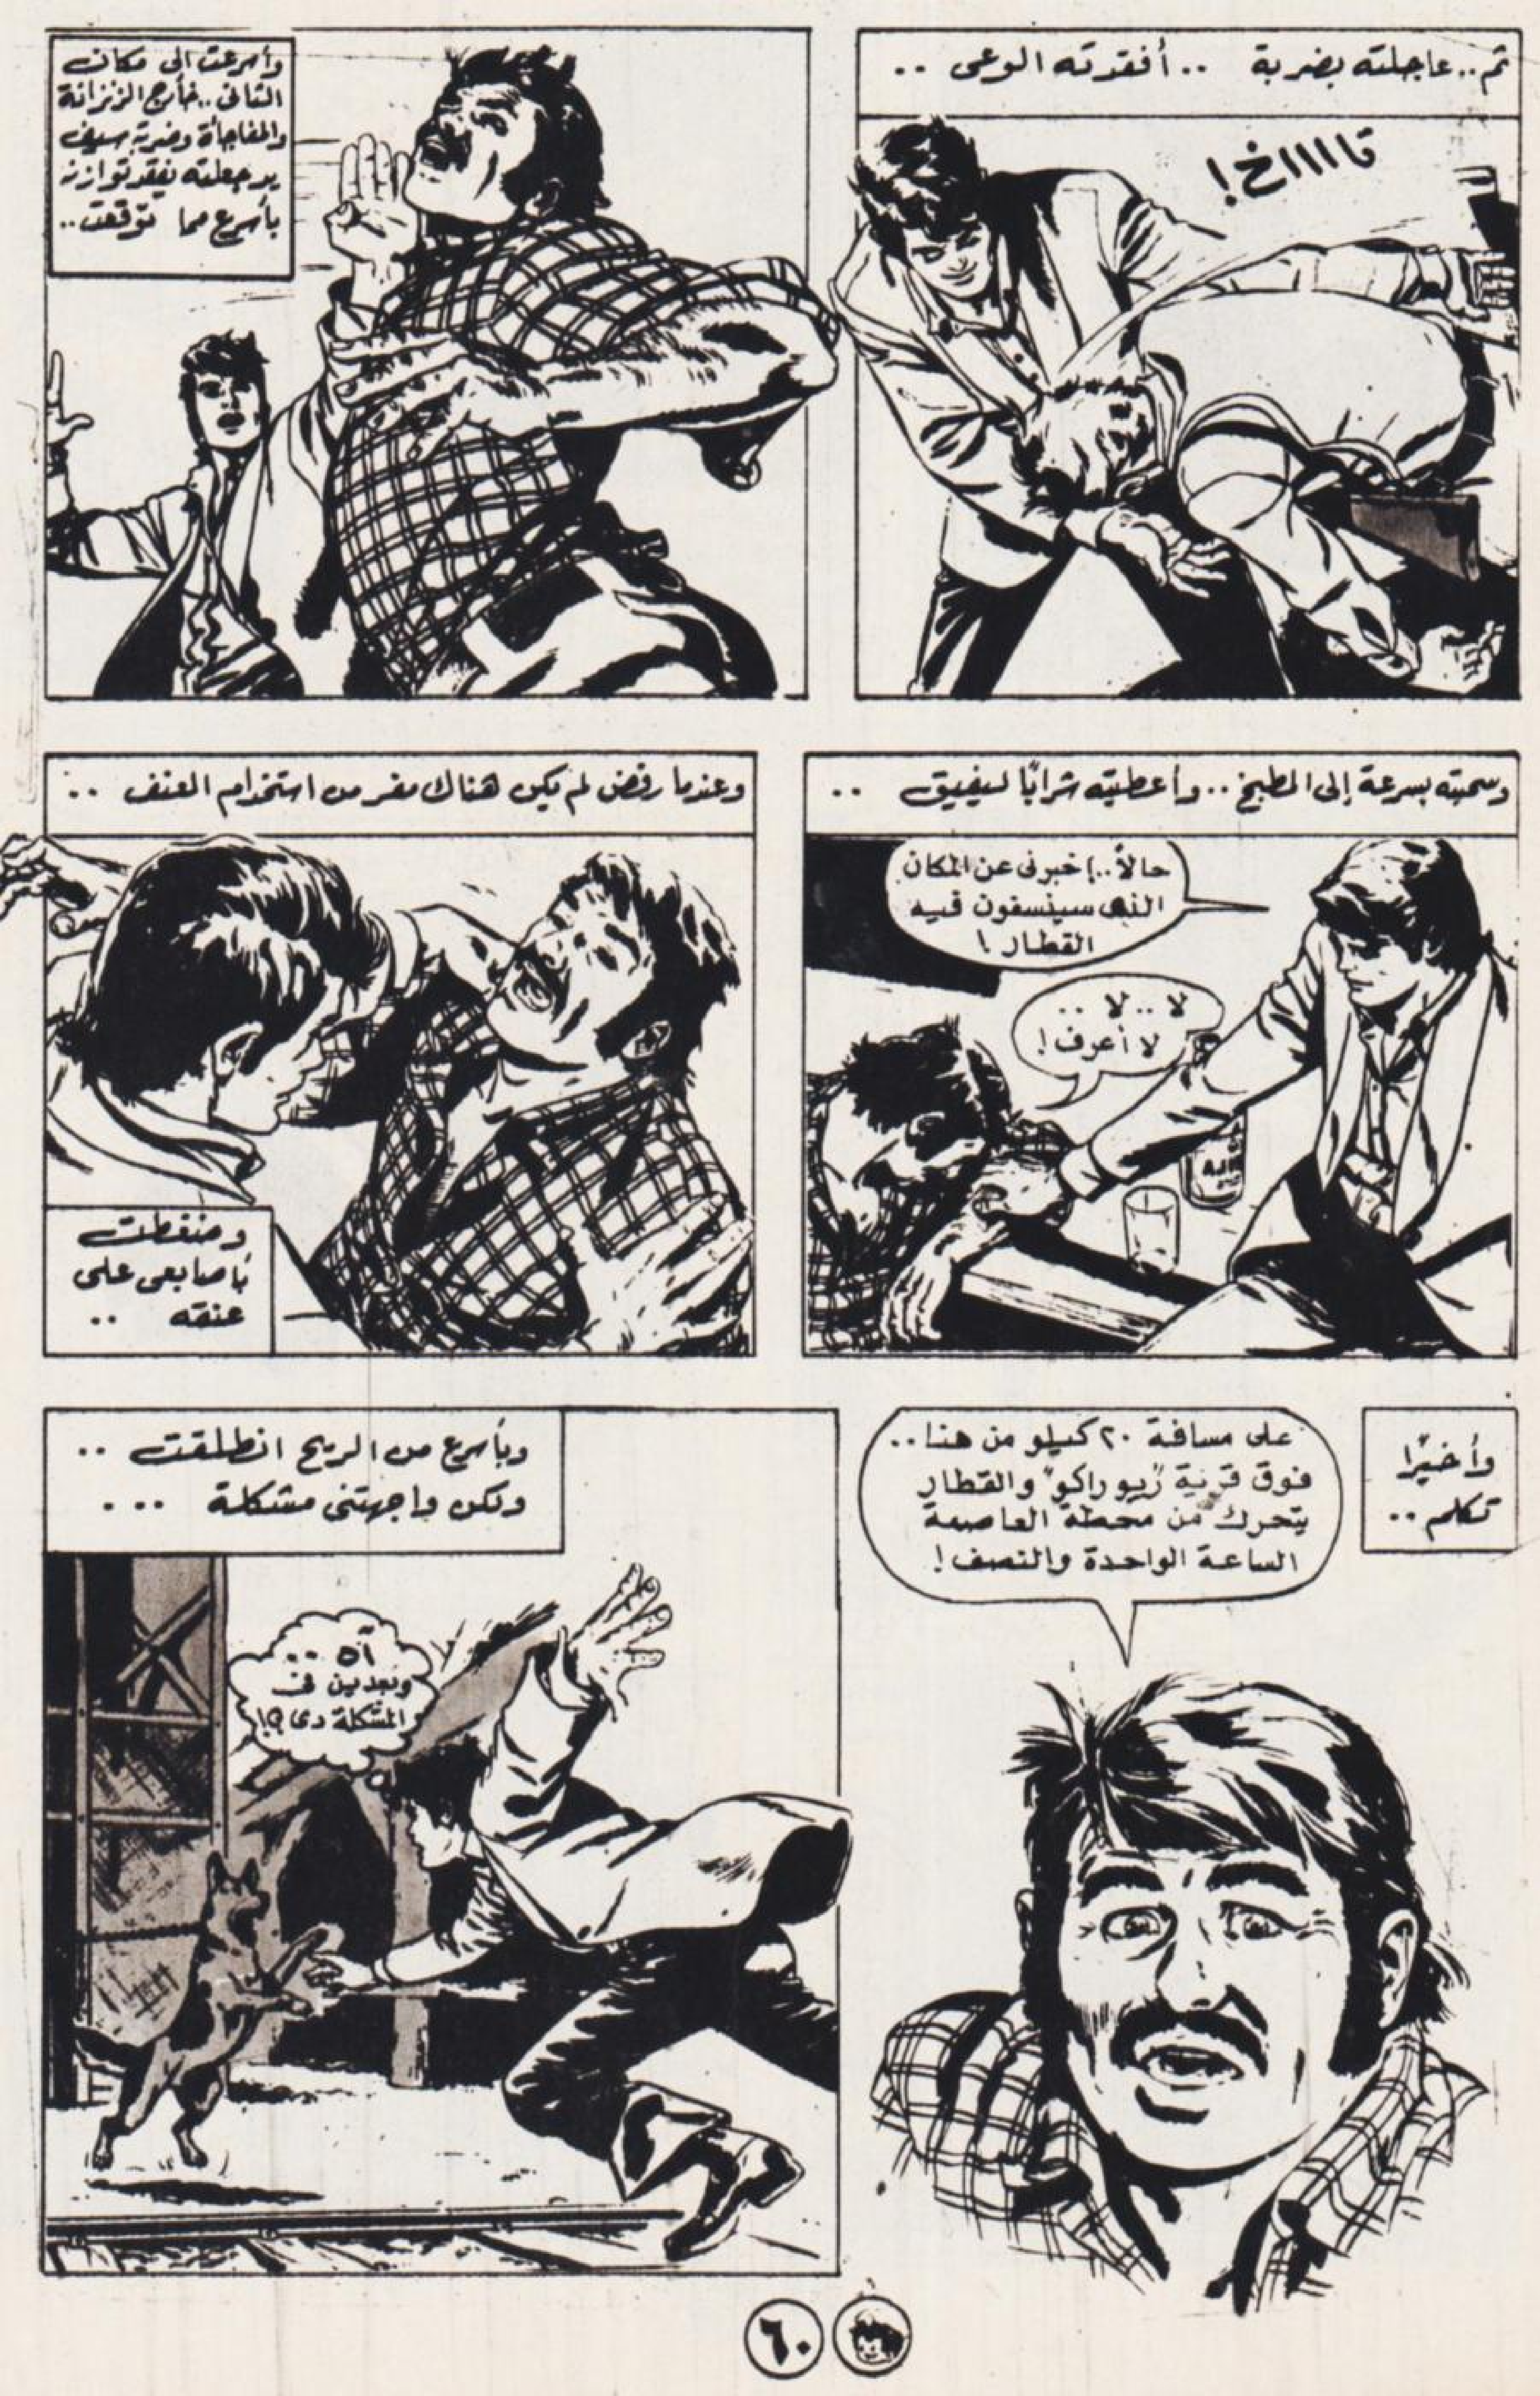 ثم.. عاجلته بضربة .. أفقدته الوعى ..
قااااخ!
وأسرعت الى مكان
الثانى.. خارج الزنزانة
والمفاجأة وضربة سيف
يد جعلته يفقد توازنه
بأسرع مما توقعت..
وسحبته بسرعة إلى المطبخ.. وأعطيته شرابًا ليفيق ..
حالاً..! خبرنى عن المكان
الذى سينسفون فيه
القطار!
لا .. لا ..
لا أعرف!
وعندما رفض لم يكن هناك مفر من استخدام العنف ..
وضغطت
بأصابعى على
عنقه ..
وأخيرًا
تكلم ..
على مسافة ٢٠ كيلو من هنا..
فوق قرية "ريوراكو" والقطار
يتحرك من محطة العاصمة
الساعة الواحدة والنصف!
وبأسرع من الريح انطلقت ..
ولكن واجهتنى مشكلة ...
آه ..
وبعدين فى
المشكلة دى؟!
٦٠